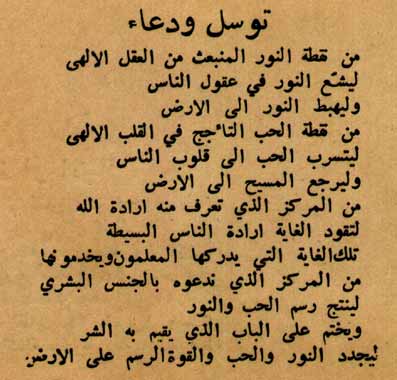 توسل ودعاء
من نقطة النور المنبعث من العقل الالهى
ليشع النور في عقول الناس
وليهبط النور الى الارض
من نقطة الحب التأجج في القلب الالهى
ليتسرب الحب الى قلوب الناس
وليرجع المسيح الى الارض
من المركز الذي تعرف منه ارادة الله
لتقود الغاية ارادة الناس البسيطة
تلك الغاية التي يدركها المعلمون ويخدمونها
من المركز الذي ندعوه بالجنس البشري
لينتج رسم الحب والنور
ويختم على الباب الذي يقيم به الشر
ليجدد النور والحب والقوة الرسم على الارض.